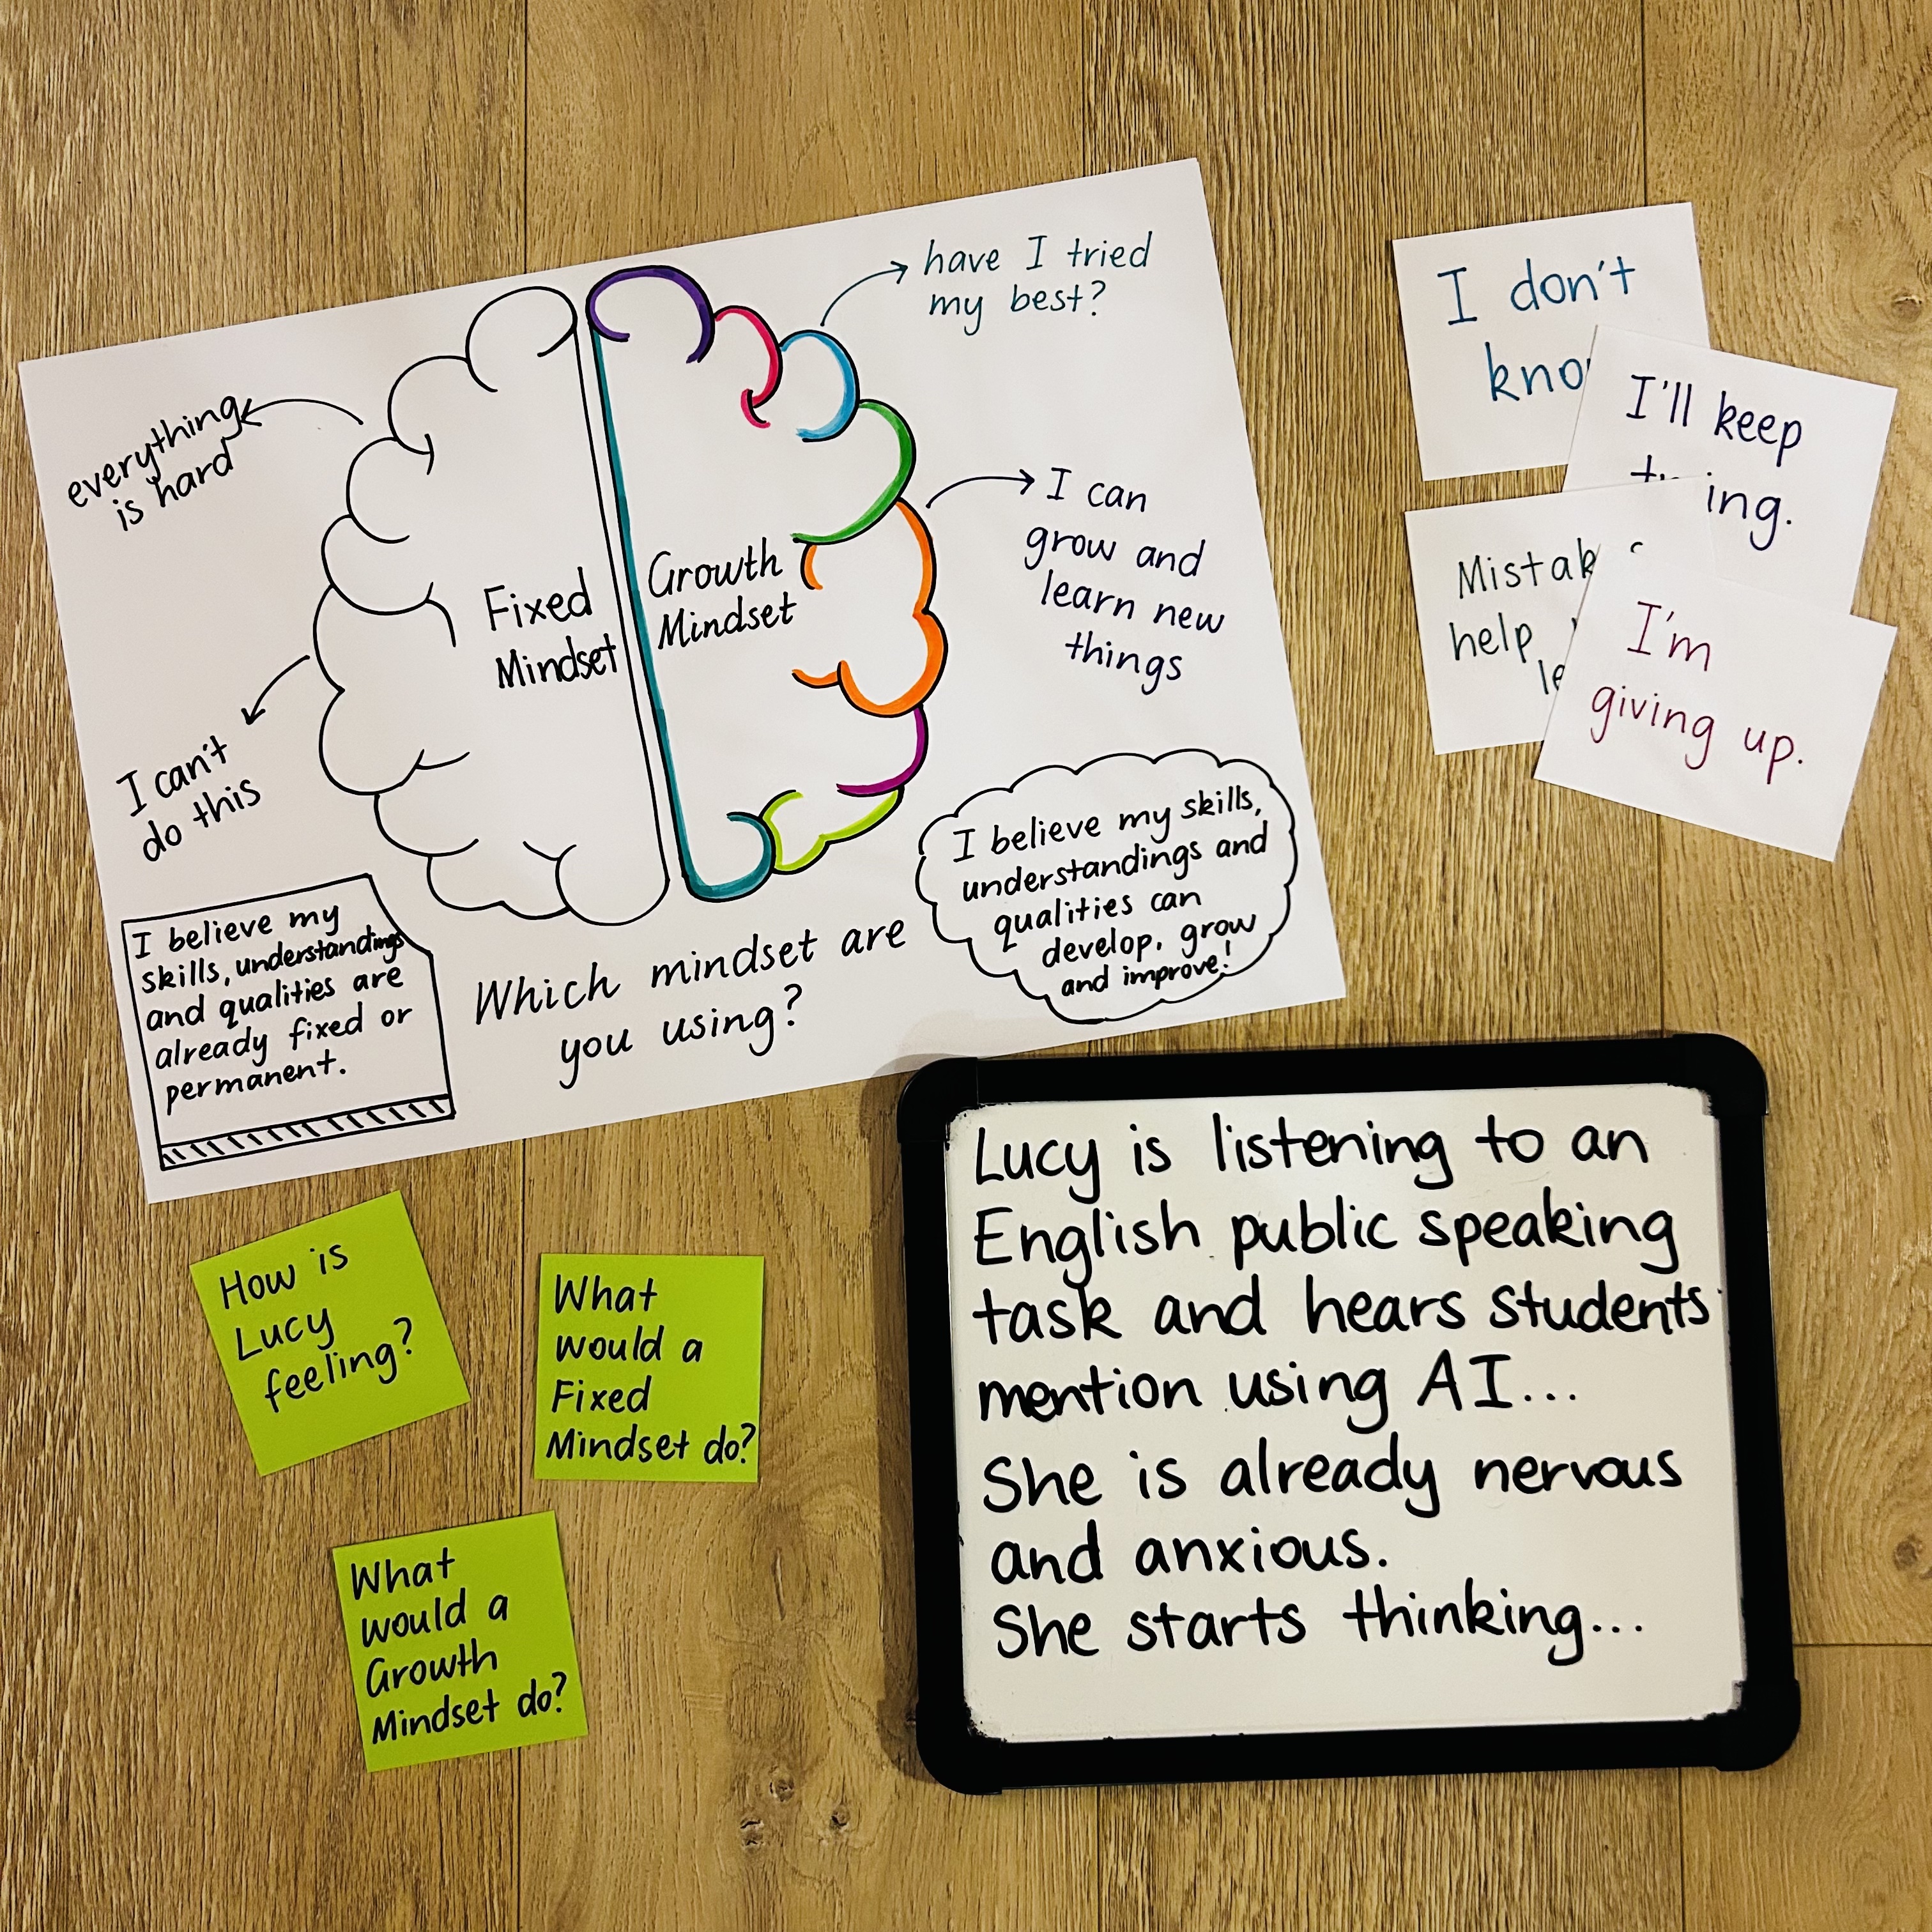 have I tried
my best?
everything
is hard
I can
grow and
learn new
things
Fixed
Mindset
Growth
Mindset
I can't
do this
I believe my
skills, understandings
and qualities are
already fixed or
permanent.
Which mindset are
you using?
I believe my skills,
understandings and
qualities can
develop, grow
and improve!
I don't
I'll keep
help
I'm
giving up.
How is
Lucy
feeling?
What
would a
Fixed
Mindset do?
What
would a
Growth
Mindset do?
Lucy is listening to an
English public speaking
task and hears students
mention using AI...
She is already nervous
and anxious.
She starts thinking...